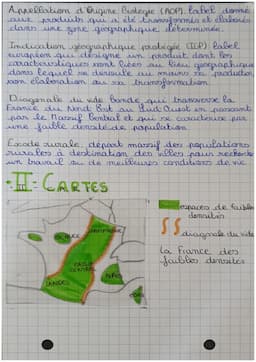 Appellation d'Origine Protégée (AOP) label donné
aux produits qui a été transformés et élaborés
dans une zone géographique déterminée.
Indication géographique protégée (IGP) label
européen qui désigne un produit dont les
caractéristiques sont liées au lieu géographique
dans lequel se déroule au moins sa production
son élaboration ou sa transformation
Diagonale du vide bande qui transverse la
France du Nord Est au Sud Ouest en passant
par le Massif Central et qui se caractérise par
une faible densité de population
Exode rurale départ massif des populations
rurales à destination des villes pour rechercher
un travail ou de meilleures conditions de vie
II - CARTES
espaces de faibles
densités
diagonale du vide
La France des
faibles densités
CHAMPAGNE
MASSIF
CENTRAL
LANDES
ALPES